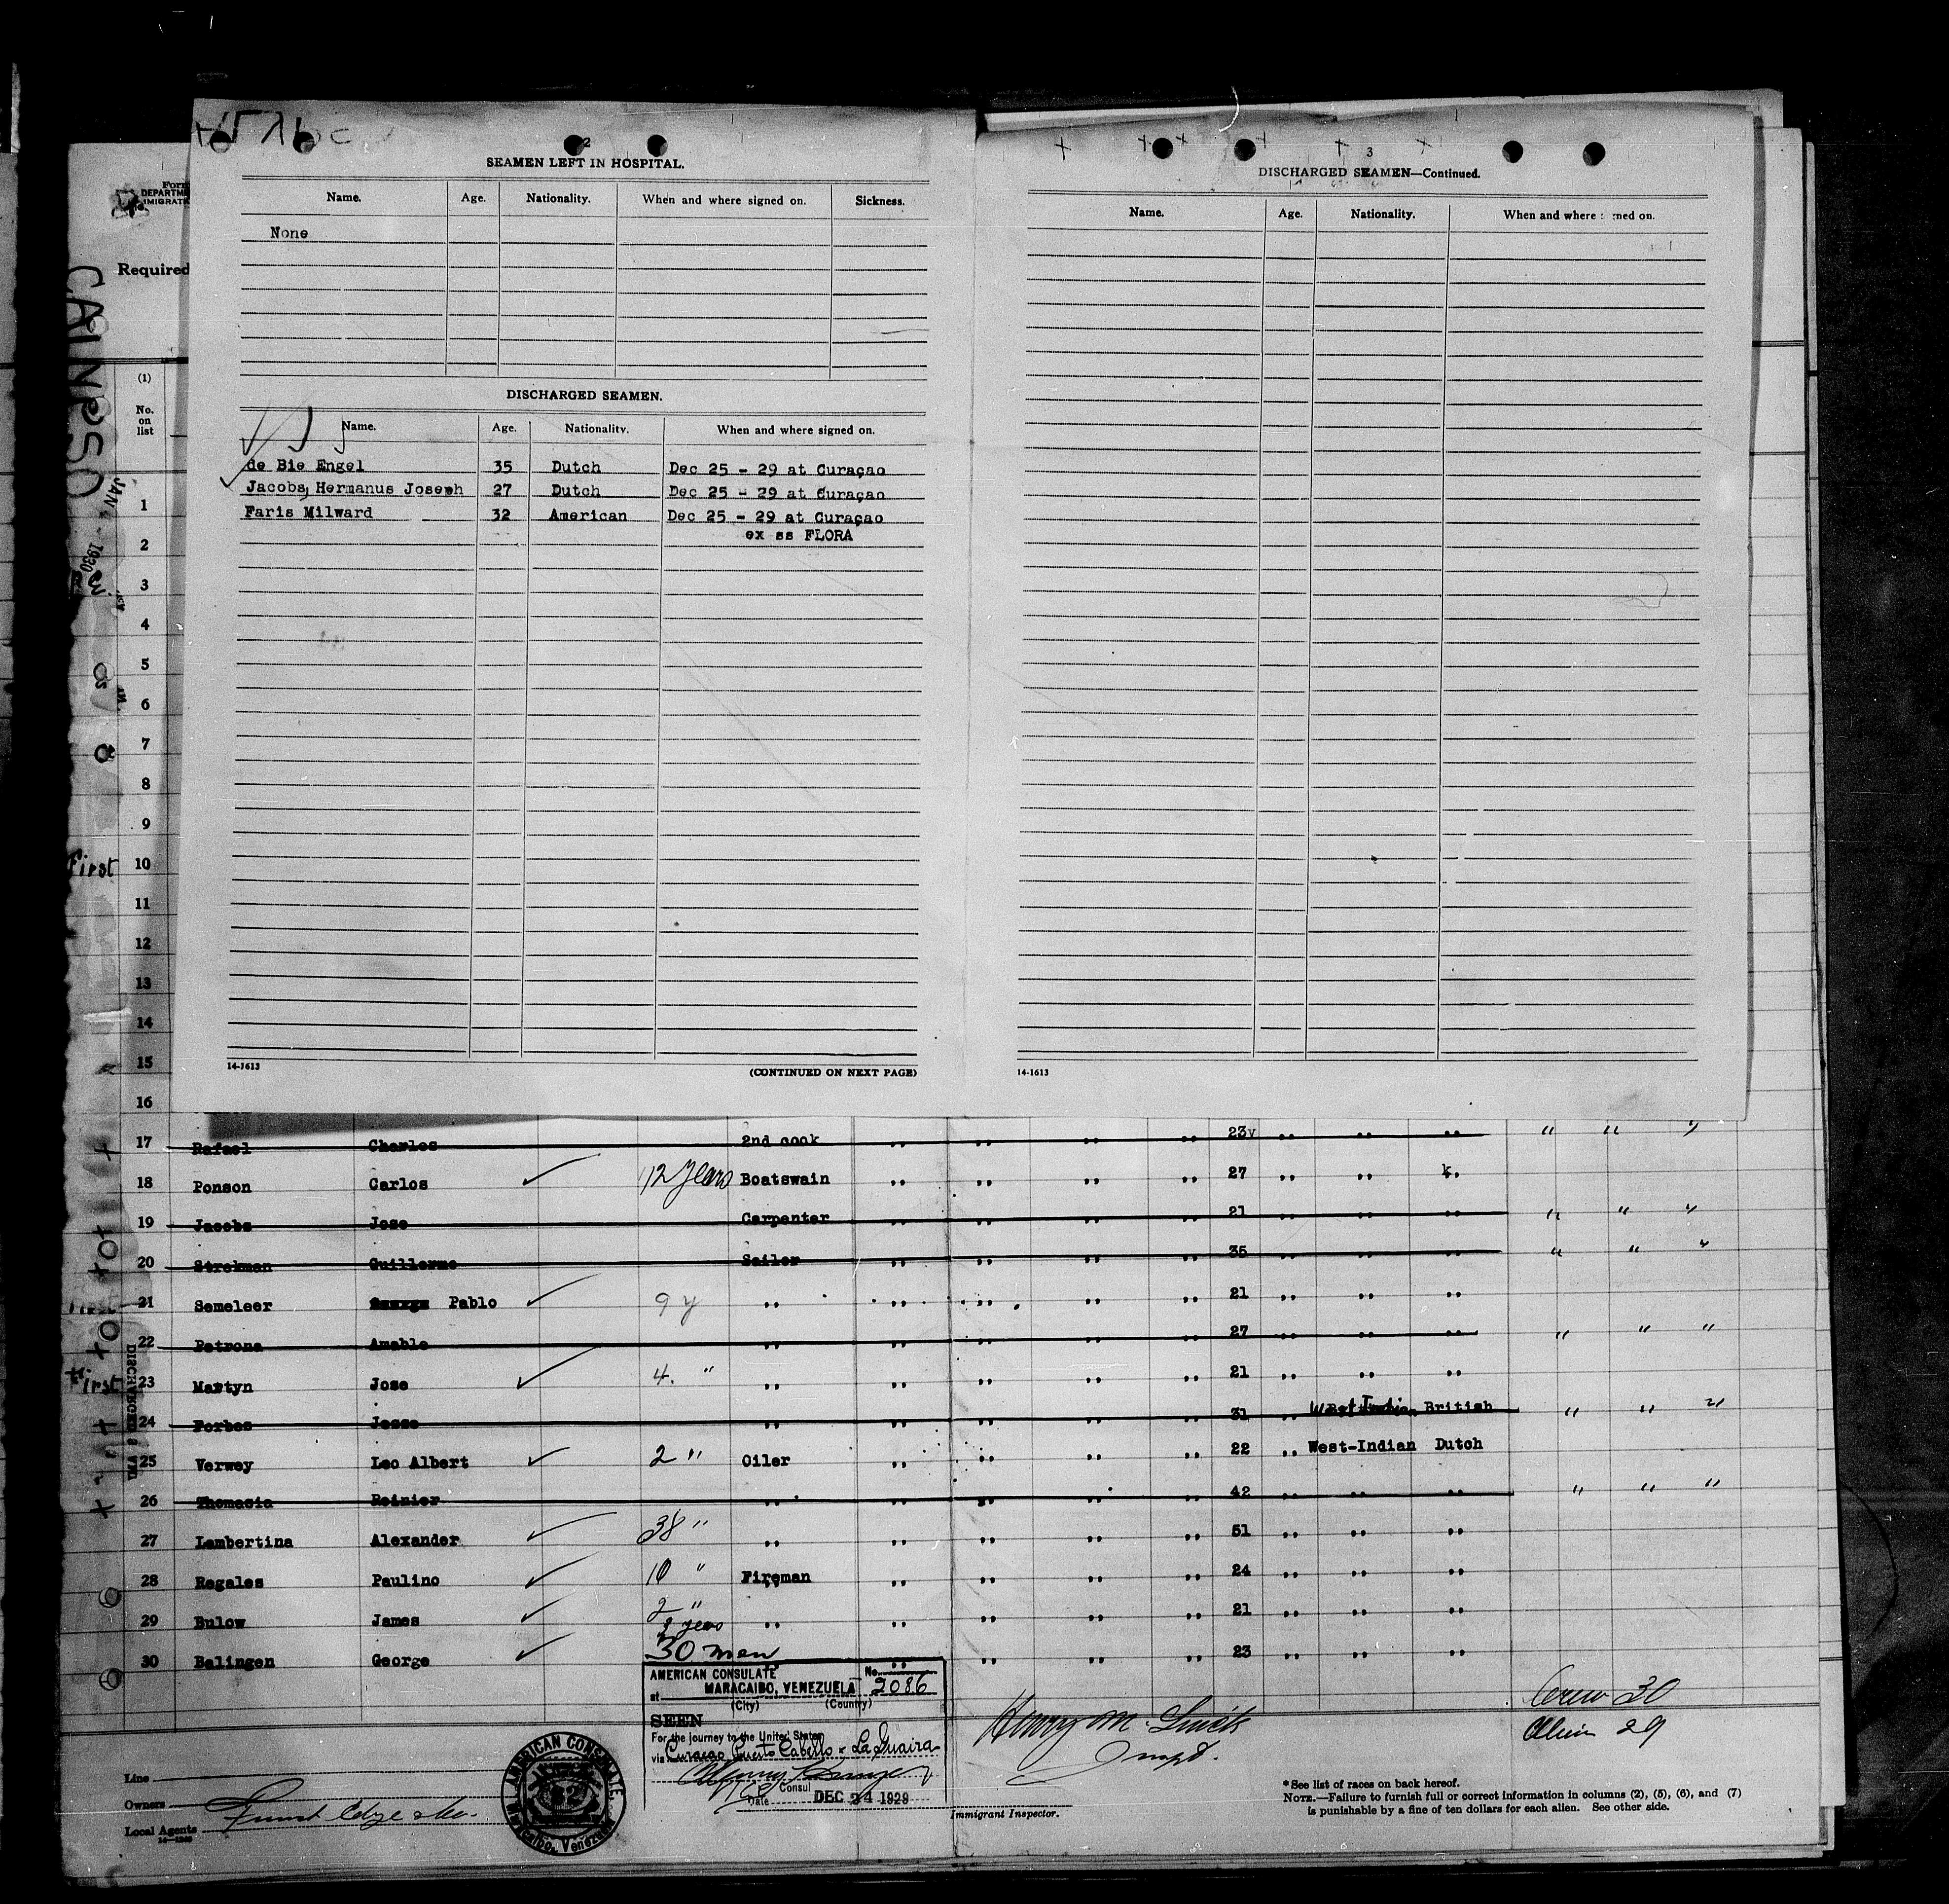 2
SEAMEN LEFT IN HOSPITAL.
Name. Age. Nationality. When and where signed on. Sickness.
None
DISCHARGED SEAMEN.
Name. Age. Nationality. When and where signed on.
de Bie Engel 35 Dutch Dec 25 - 29 at Curaçao
Jacobs, Hermanus Joseph 27 Dutch Dec 25 - 29 at Curaçao
Faris Milward 32 American Dec 25 - 29 at Curaçao
ex ss FLORA
14-1613
(CONTINUED ON NEXT PAGE)
3
DISCHARGED SEAMEN—Continued.
Name. Age. Nationality. When and where signed on.
14-1613
Form
DEPARTME
IMIGRATI
Required
(1)
No.
on
list
JAN - 1930
1
2
3
4
5
6
7
8
9
First 10
11
12
13
14
15
16
17 Rafael Charles 2nd cook ,, ,, ,, ,, 23y ,, ,, ,, " " "
18 Ponson Carlos 12 years Boatswain ,, ,, ,, ,, 27 ,, ,, ,,
19 Jacobs Jose Carpenter ,, ,, ,, ,, 21 ,, ,, ,, " " "
20 Strekman Guillermo Sailor ,, ,, ,, ,, 35 ,, ,, ,, " " "
21 Semeleer Pablo 9 y ,, ,, ,, ,, ,, 21 ,, ,, ,,
22 Petrona Amable ,, ,, ,, ,, ,, 27 ,, ,, ,, " " "
First 23 Martyn Jose 4. " ,, ,, ,, ,, ,, 21 ,, ,, ,,
24 Forbes Jesse ,, ,, ,, ,, ,, 31 ,, West Indian British " " "
25 Verwey Leo Albert 2 " Oiler ,, ,, ,, ,, 22 ,, West-Indian Dutch
26 Thomasia Reinier ,, ,, ,, ,, ,, 42 ,, ,, ,, " " "
27 Lambertina Alexander 38 " ,, ,, ,, ,, ,, 51 ,, ,, ,,
28 Ragales Paulino 10 " Fireman ,, ,, ,, ,, 24 ,, ,, ,,
29 Bulow James 2 " ,, ,, ,, ,, ,, 21 ,, ,, ,,
30 Balingen George 2 years ,, ,, ,, ,, ,, 23 ,, ,, ,,
30 men
AMERICAN CONSULATE
at MARACAIBO, VENEZUELA No. 2086
(City) (Country)
SEEN
For the journey to the United States
via Curacao Puerto Cabello & La Guaira
Consul
Date DEC 24 1929
AMERICAN CONSULATE,
Maracaibo, Venezuela
Henry M.
Inspt.
Immigrant Inspector.
Crew 30
Alien 29
Line
Owners
Local Agents
*See list of races on back hereof.
NOTE.—Failure to furnish full or correct information in columns (2), (5), (6), and (7)
is punishable by a fine of ten dollars for each alien. See other side.